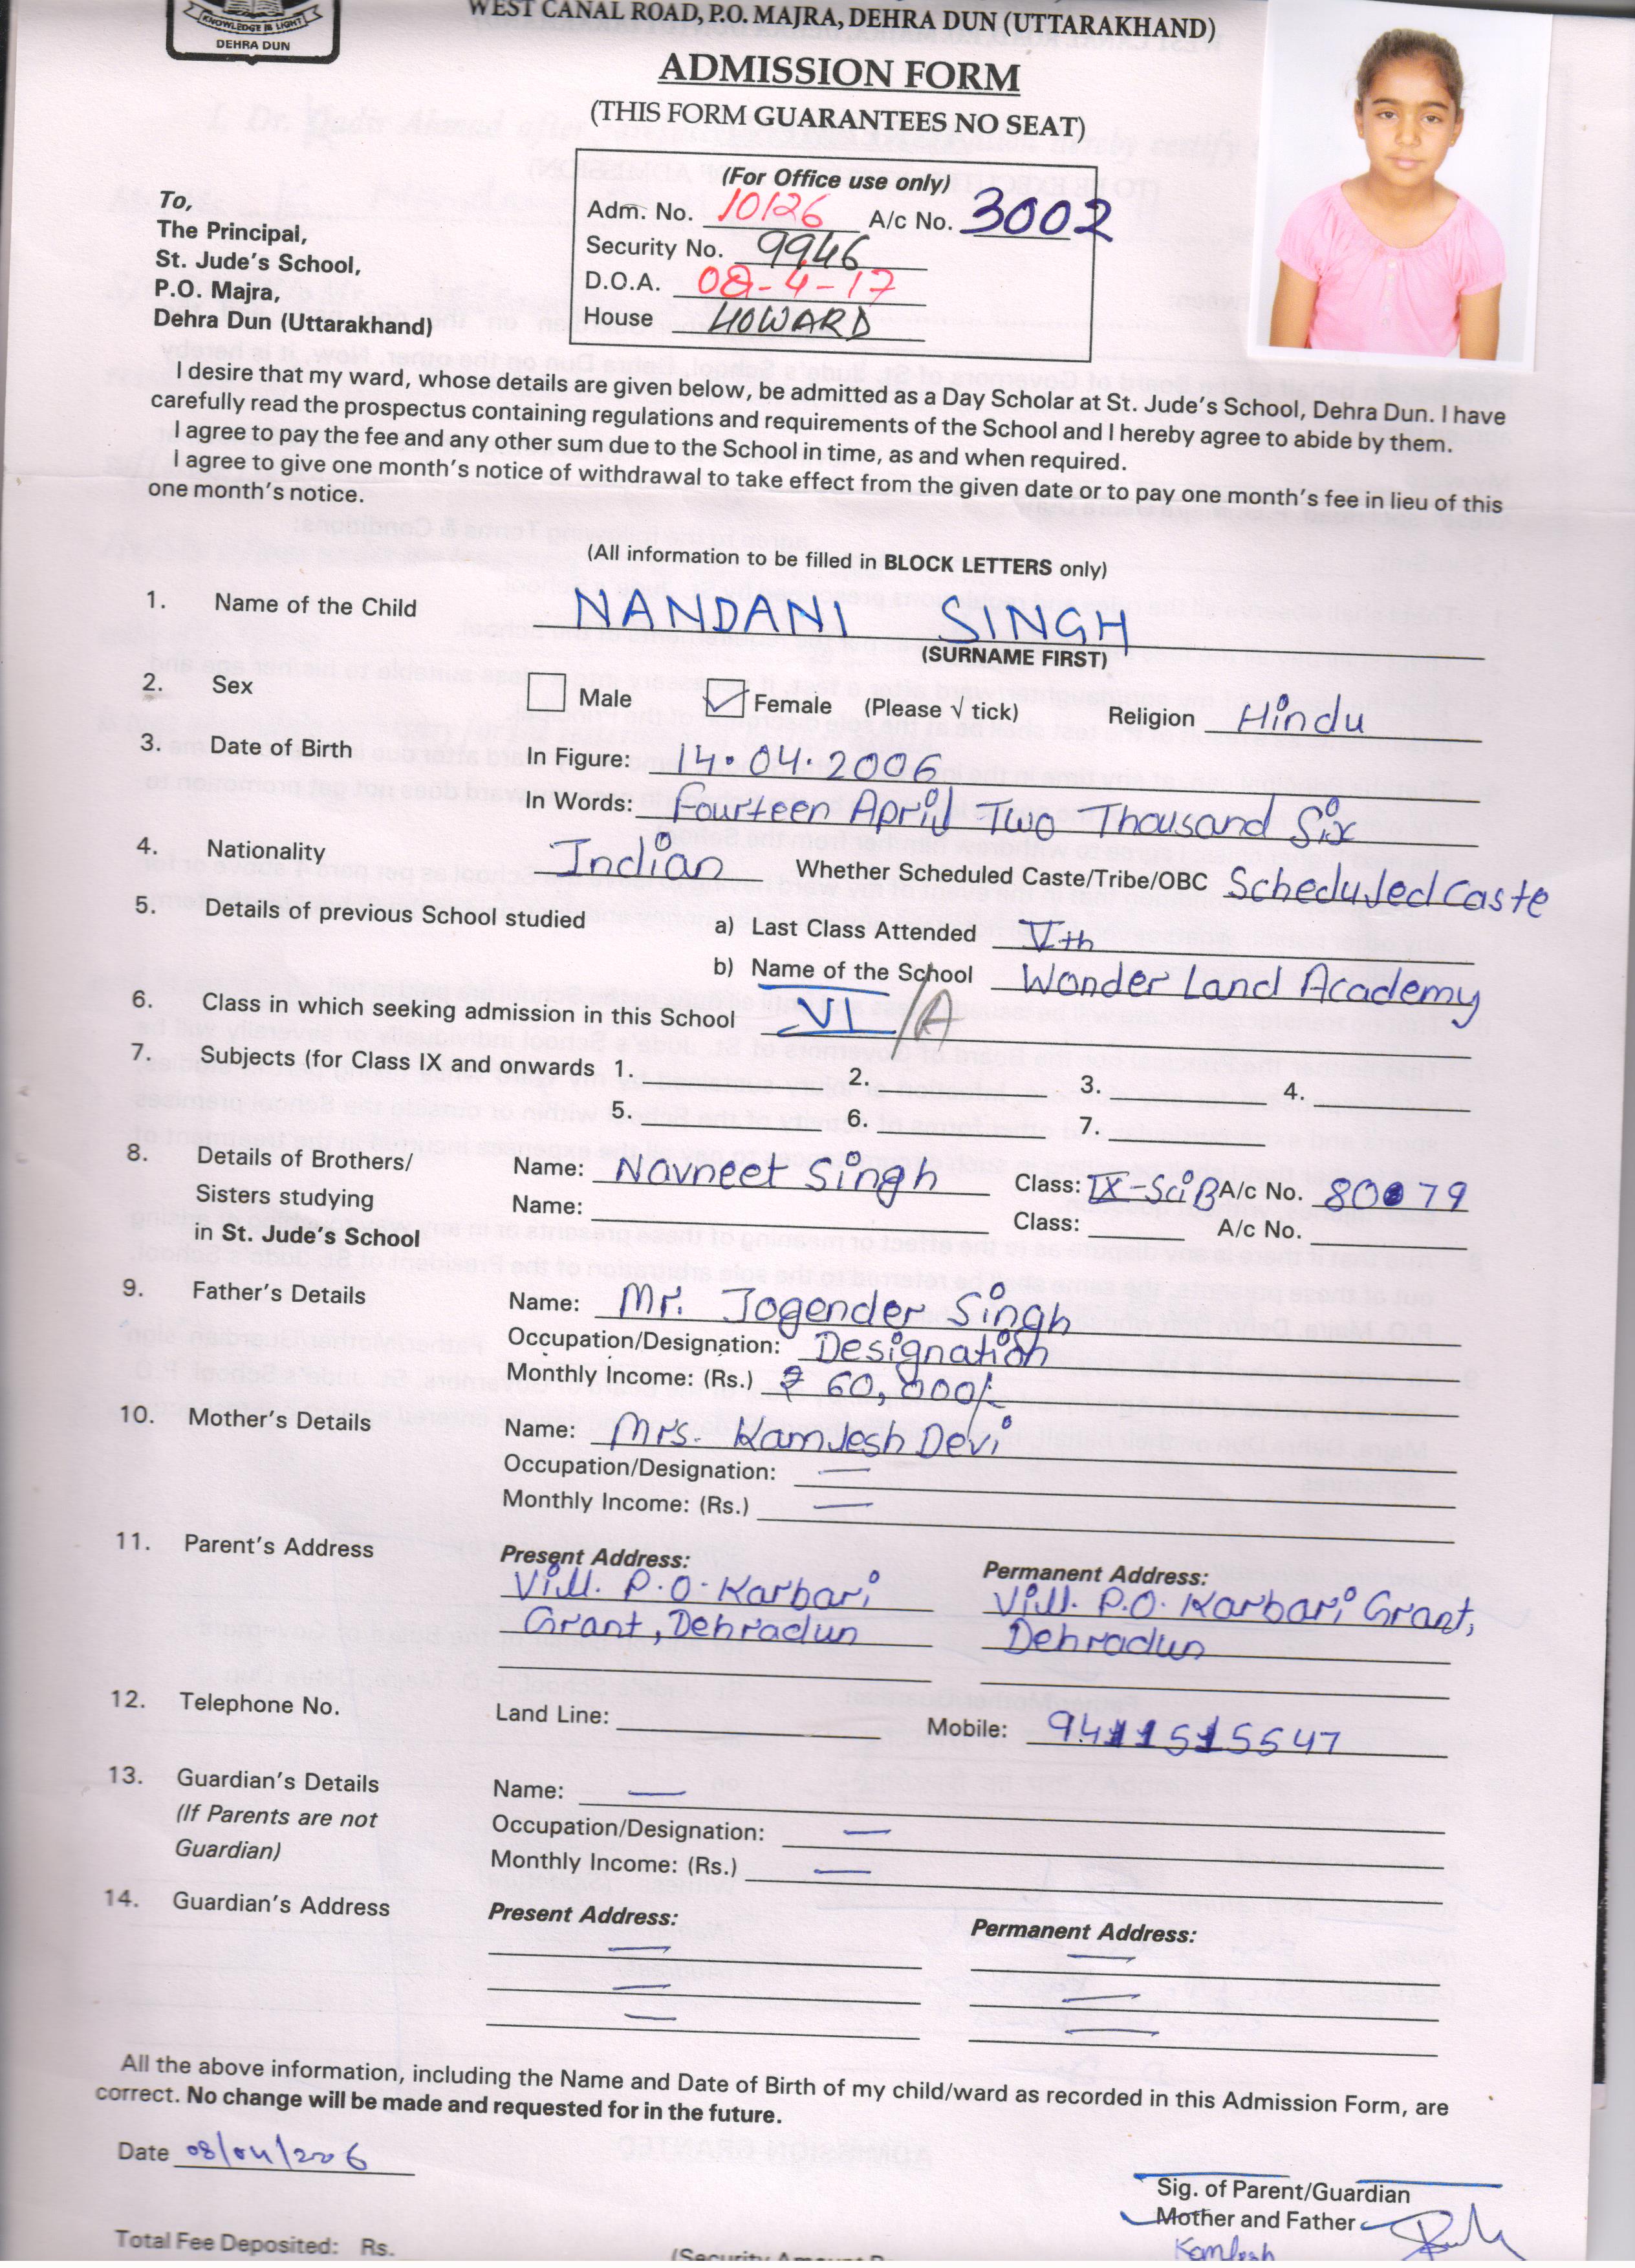 KNOWLEDGE IS LIGHT
DEHRA DUN
WEST CANAL ROAD, P.O. MAJRA, DEHRA DUN (UTTARAKHAND)
ADMISSION FORM
(THIS FORM GUARANTEES NO SEAT)
(For Office use only)
Adm. No. 10126 A/c No. 3002
Security No. 9946
D.O.A. 08-4-17
House HOWARD
To,
The Principal,
St. Jude's School,
P.O. Majra,
Dehra Dun (Uttarakhand)
I desire that my ward, whose details are given below, be admitted as a Day Scholar at St. Jude's School, Dehra Dun. I have
carefully read the prospectus containing regulations and requirements of the School and I hereby agree to abide by them.
I agree to pay the fee and any other sum due to the School in time, as and when required.
I agree to give one month's notice of withdrawal to take effect from the given date or to pay one month's fee in lieu of this
one month's notice.
(All information to be filled in BLOCK LETTERS only)
1. Name of the Child NANDANI SINGH
(SURNAME FIRST)
2. Sex Male Female (Please √ tick) Religion Hindu
3. Date of Birth In Figure: 14.04.2006
In Words: Fourteen April Two Thousand Six
4. Nationality Indian Whether Scheduled Caste/Tribe/OBC Scheduled Caste
5. Details of previous School studied a) Last Class Attended Vth
b) Name of the School Wonder Land Academy
6. Class in which seeking admission in this School VI/A
7. Subjects (for Class IX and onwards 1. 2. 3. 4.
5. 6. 7.
8. Details of Brothers/ Name: Navneet Singh Class: IX-Sci B A/c No. 80079
Sisters studying Name: Class: A/c No.
in St. Jude's School
9. Father's Details Name: Mr. Jogender Singh
Occupation/Designation: Designation
Monthly Income: (Rs.) ₹ 60,000/-
10. Mother's Details Name: Mrs. Kamlesh Devi
Occupation/Designation: —
Monthly Income: (Rs.) —
11. Parent's Address Present Address: Permanent Address:
Vill. P.O. Karbari Vill. P.O. Karbari Grant,
Grant, Dehradun Dehradun
12. Telephone No. Land Line: Mobile: 9411515547
13. Guardian's Details Name: —
(If Parents are not Occupation/Designation: —
Guardian) Monthly Income: (Rs.) —
14. Guardian's Address Present Address: Permanent Address:
— —
— —
— —
All the above information, including the Name and Date of Birth of my child/ward as recorded in this Admission Form, are
correct. No change will be made and requested for in the future.
Date 08/04/2006
Sig. of Parent/Guardian
Mother and Father
Kamlesh
Total Fee Deposited: Rs.
(Security Amount